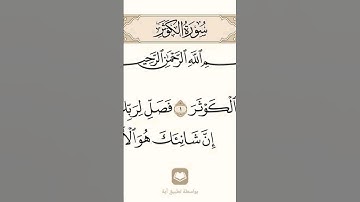 سُورَةُ الْكَوْثَرِ
ـمِ اللَّهِ الرَّحْمَٰنِ الرَّحِيـ
الْكَوْثَرَ ١ فَصَلِّ لِرَبِّـ
إِنَّ شَانِئَكَ هُوَ الْأَ
بواسطة تطبيق آية